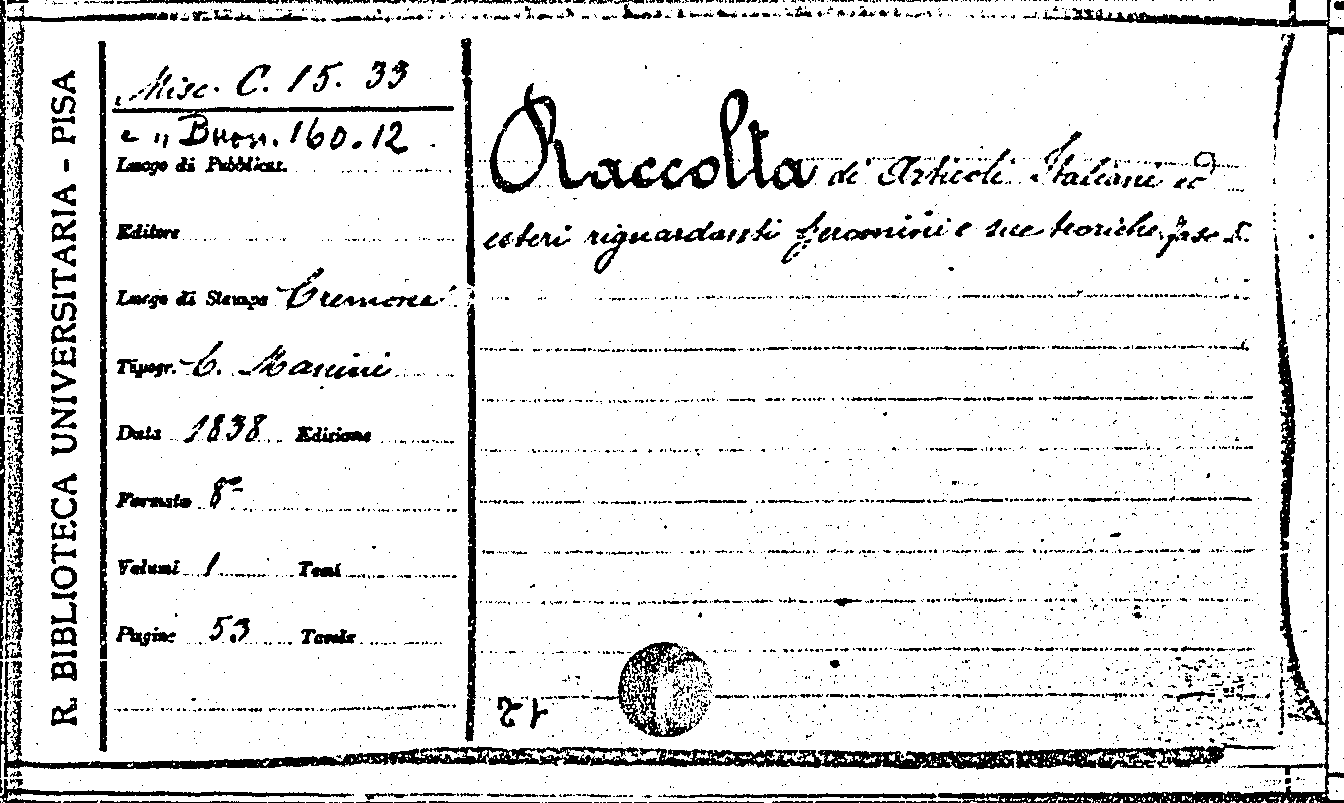 R. BIBLIOTECA UNIVERSITARIA - PISA
Misc. C. 15. 33
e " Buon. 160.12.
Luogo di Pubblicaz.
Editore
Luogo di Stampa Cremona
Tipogr. C. Manini
Data 1838 Edizione
Formato 8º
Volumi 1 Tomi
Pagine 53 Tavole
Raccolta di Articoli Italiani ed
esteri riguardanti Geromini e sue teoriche fasc I.